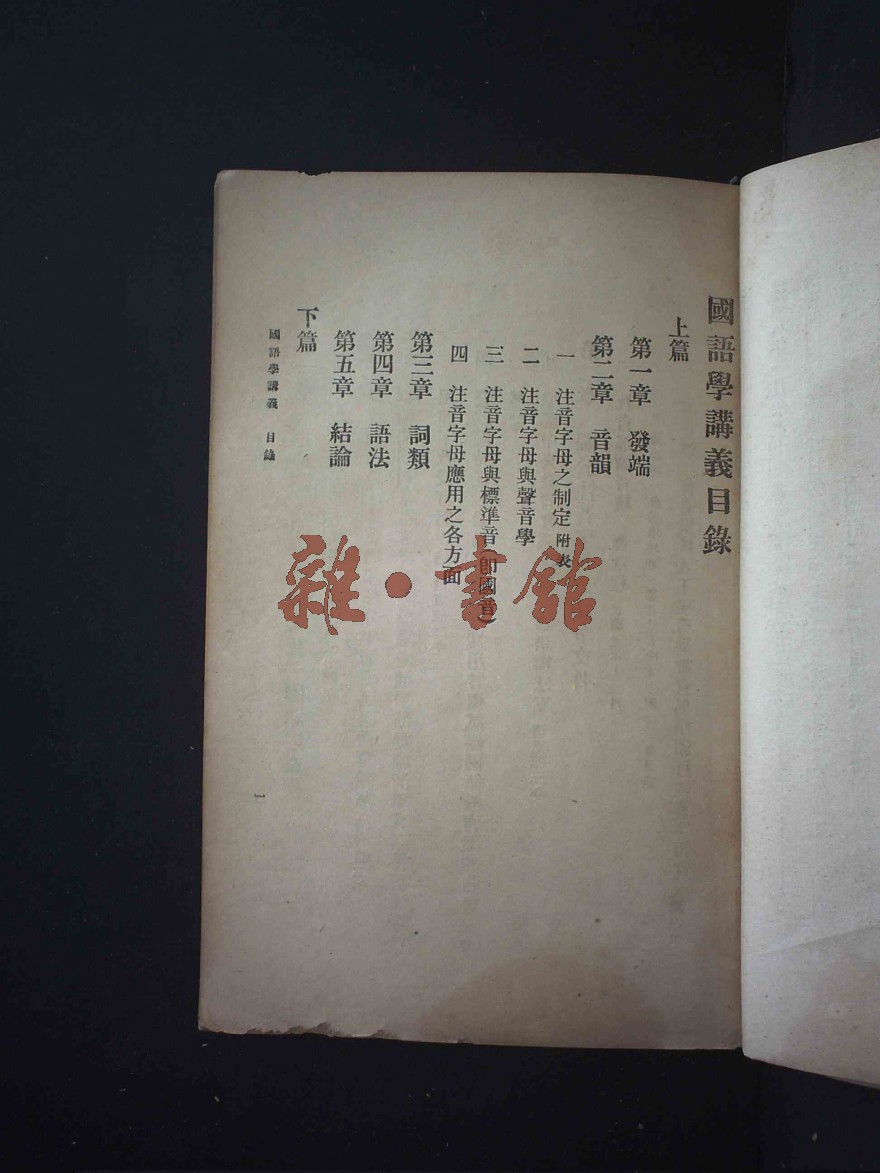 國語學講義目錄
上篇
第一章 發端
第二章 音韻
一 注音字母之制定 附表
二 注音字母與聲音學
三 注音字母與標準音(即國音)
四 注音字母應用之各方面
第三章 詞類
第四章 語法
第五章 結論
下篇
國語學講義 目錄
一
雜·書館